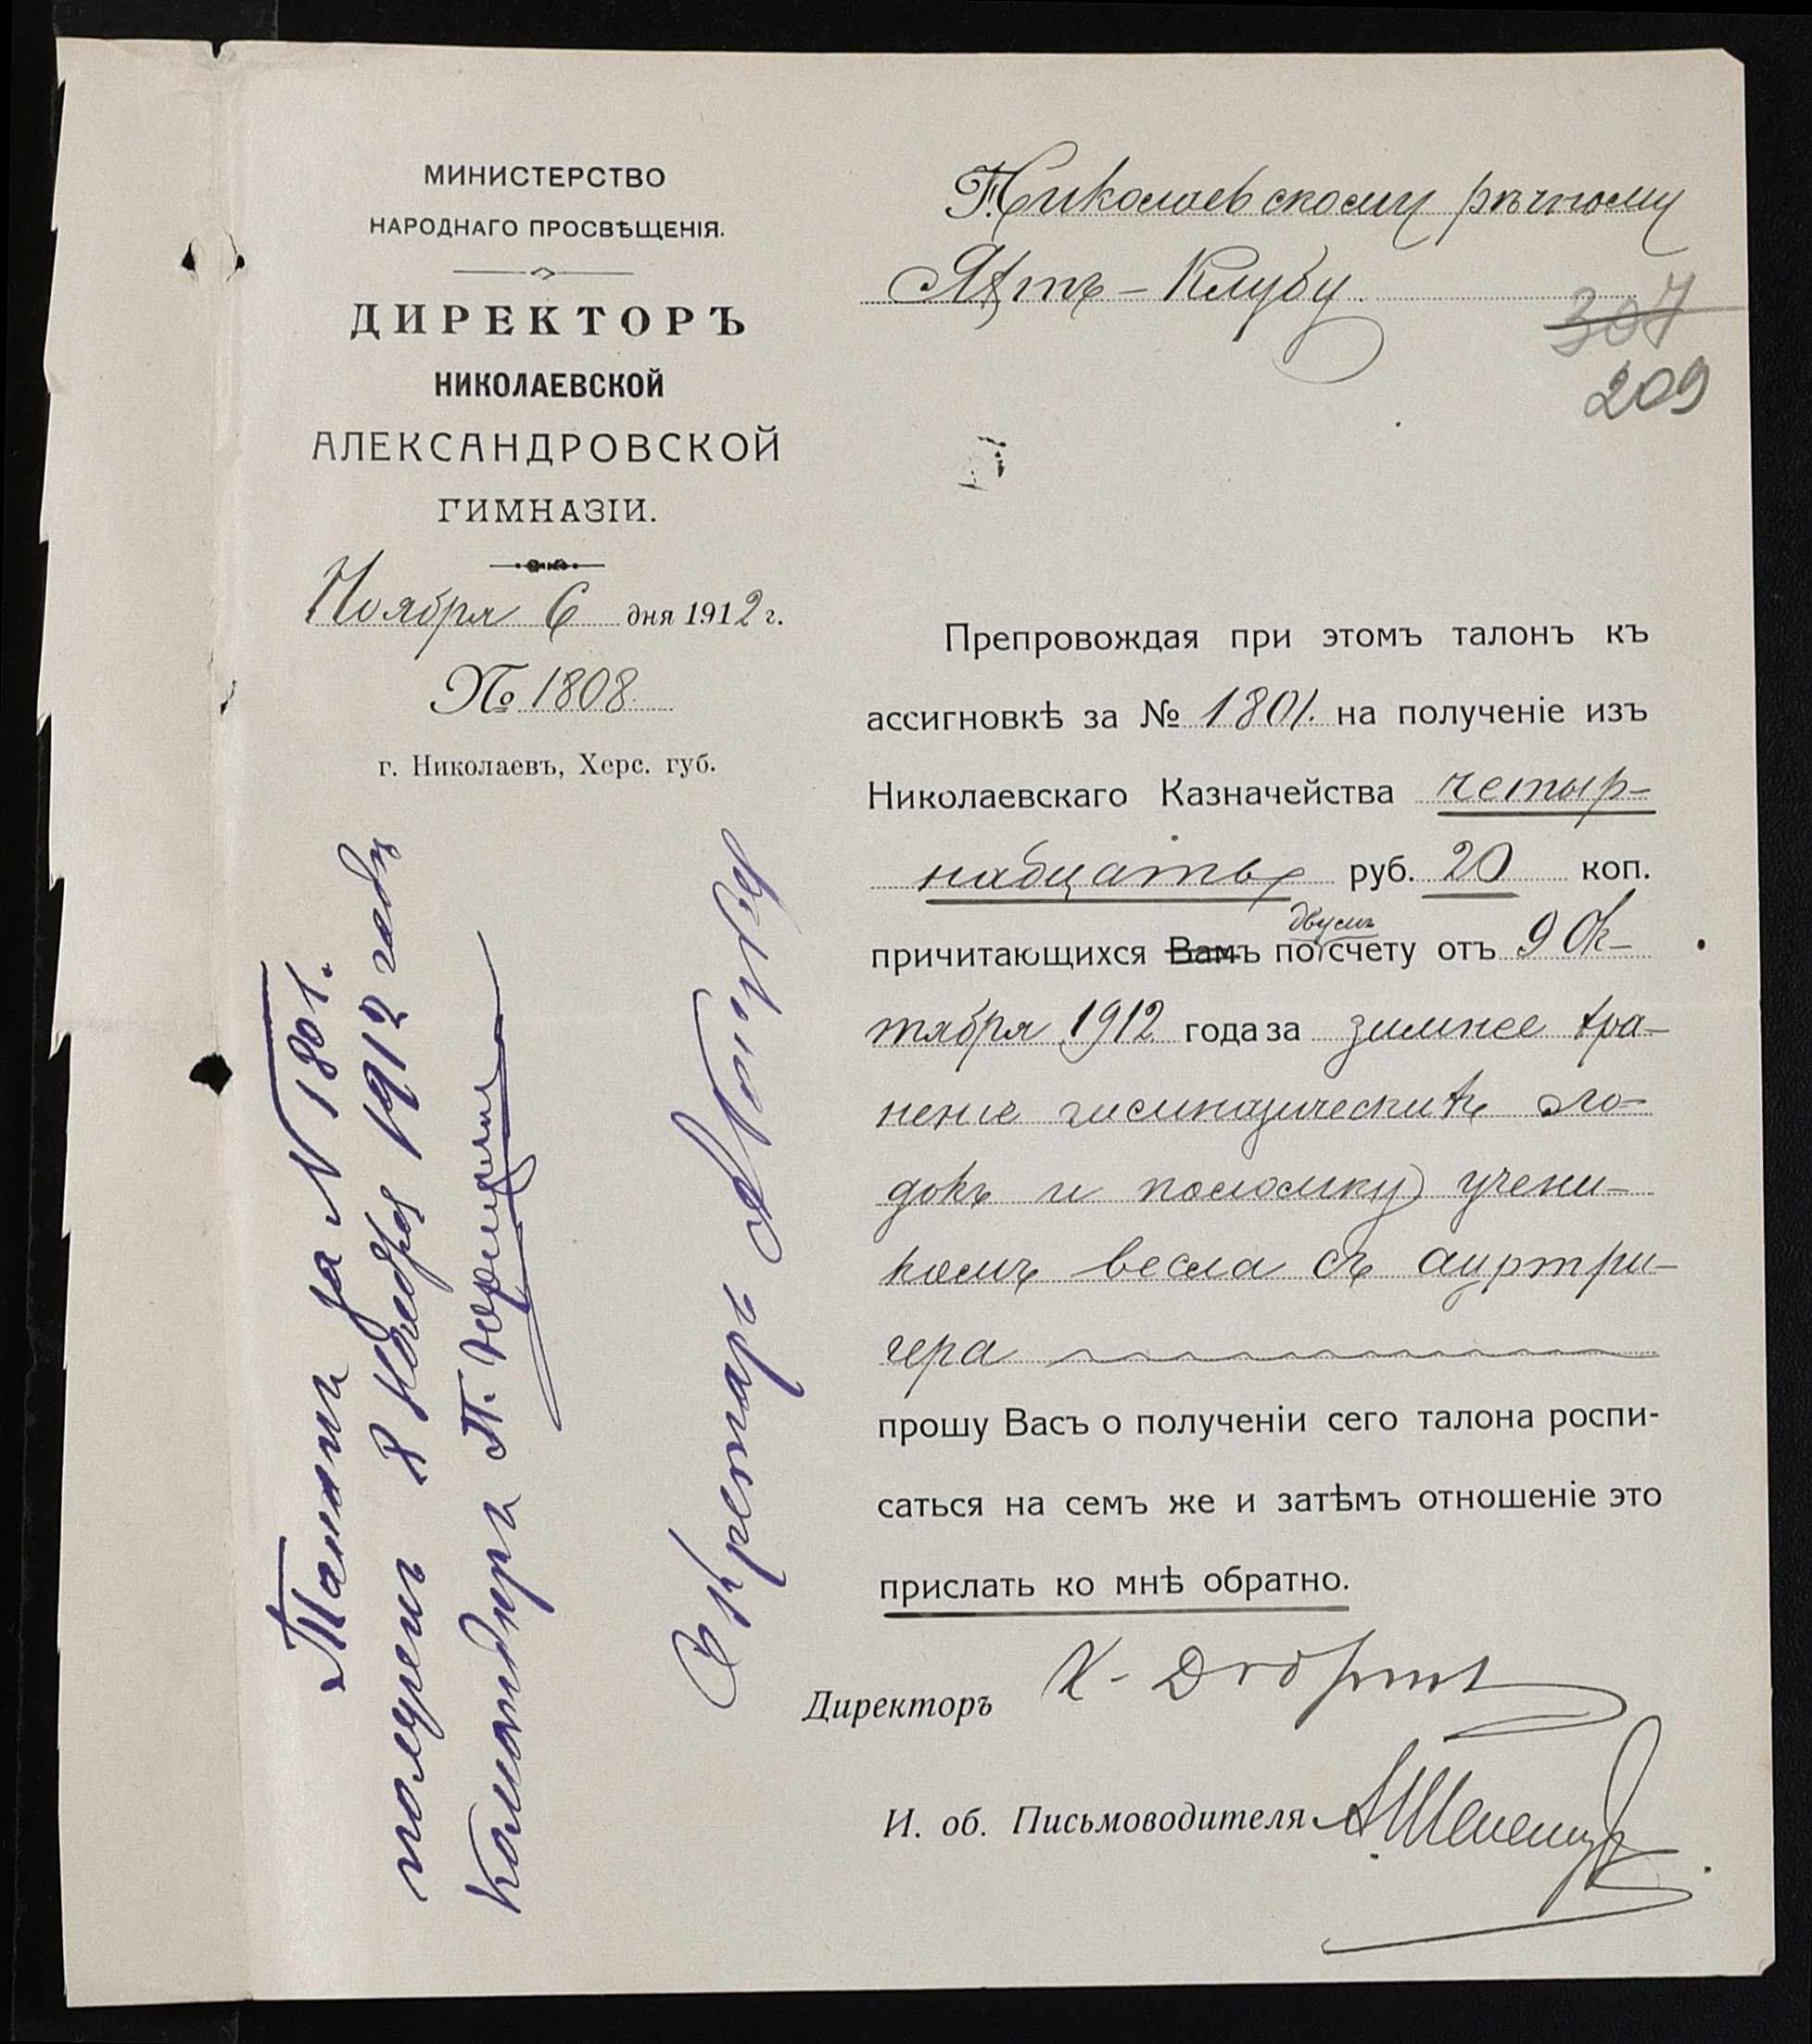 МИНИСТЕРСТВО
НАРОДНАГО ПРОСВѢЩЕНІЯ.
ДИРЕКТОРЪ
НИКОЛАЕВСКОЙ
АЛЕКСАНДРОВСКОЙ
ГИМНАЗІИ.
Ноября 6 дня 1912 г.
№ 1808.
г. Николаевъ, Херс. губ.
Николаевскому рѣчному
Яхтъ-Клубу
307
209
Препровождая при этомъ талонъ къ
ассигновкѣ за № 1801. на полученіе изъ
Николаевскаго Казначейства четыр-
надцать руб. 20 коп.
двумъ
причитающихся Вамъ по счету отъ 9 Ок-
тября 1912 года за зимнее хра-
неніе гимназическихъ ло-
докъ и поломку учени-
комъ весла съ аутри-
гера
прошу Васъ о полученіи сего талона роспи-
саться на семъ же и затѣмъ отношеніе это
прислать ко мнѣ обратно.
Директоръ
И. об. Письмоводителя
Талонъ за N 1801.
получилъ 8 Ноября 1912 года
Командиръ П.
Секретарь